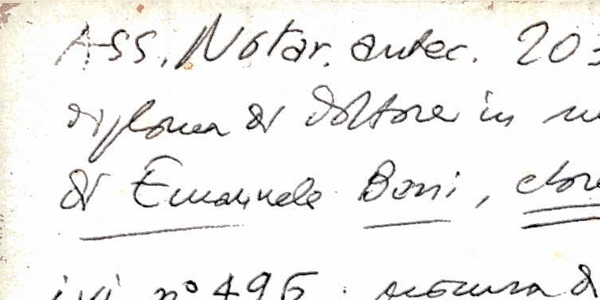 Ass. Notar. antec. 203
diploma di dottore in
di Emanuele Boni,
ivi n° 496.